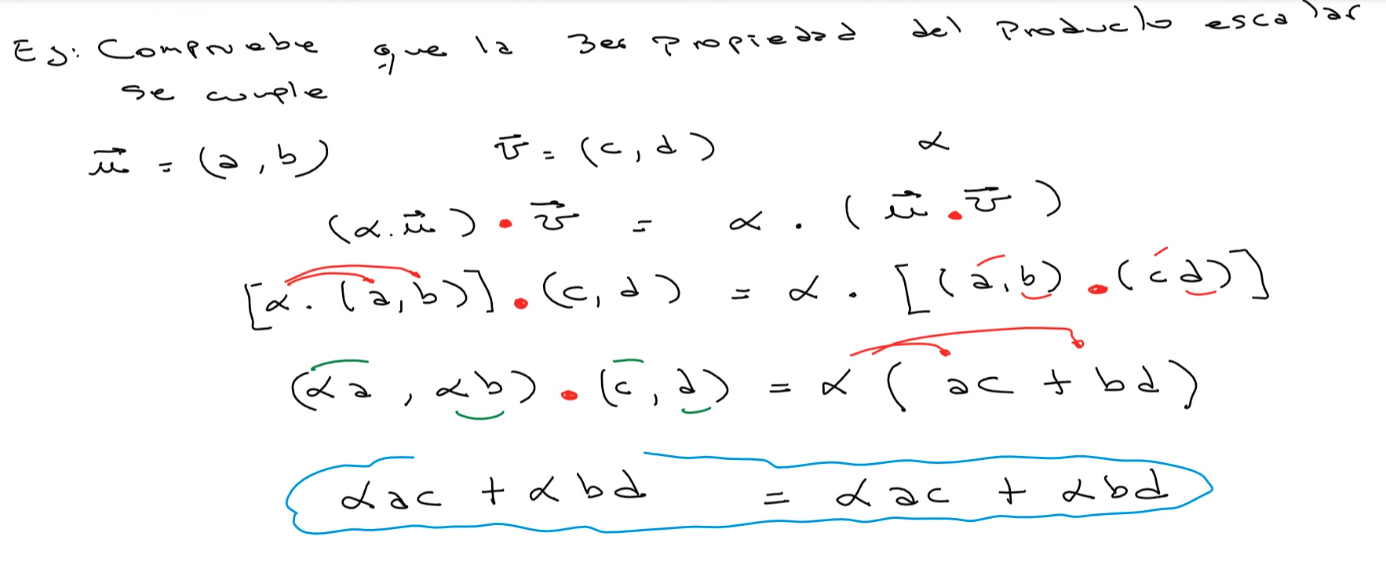 Ej: Compruebe que la 3er Propiedad del Producto escalar
se cumple
u⃗ = (a, b) v⃗ = (c, d) α
(α.u⃗) • v⃗ = α . (u⃗ • v⃗)
[α. (a, b)] • (c, d) = α . [(a, b) • (c d)]
(αa, αb) • (c, d) = α (ac + bd)
αac + αbd = αac + αbd